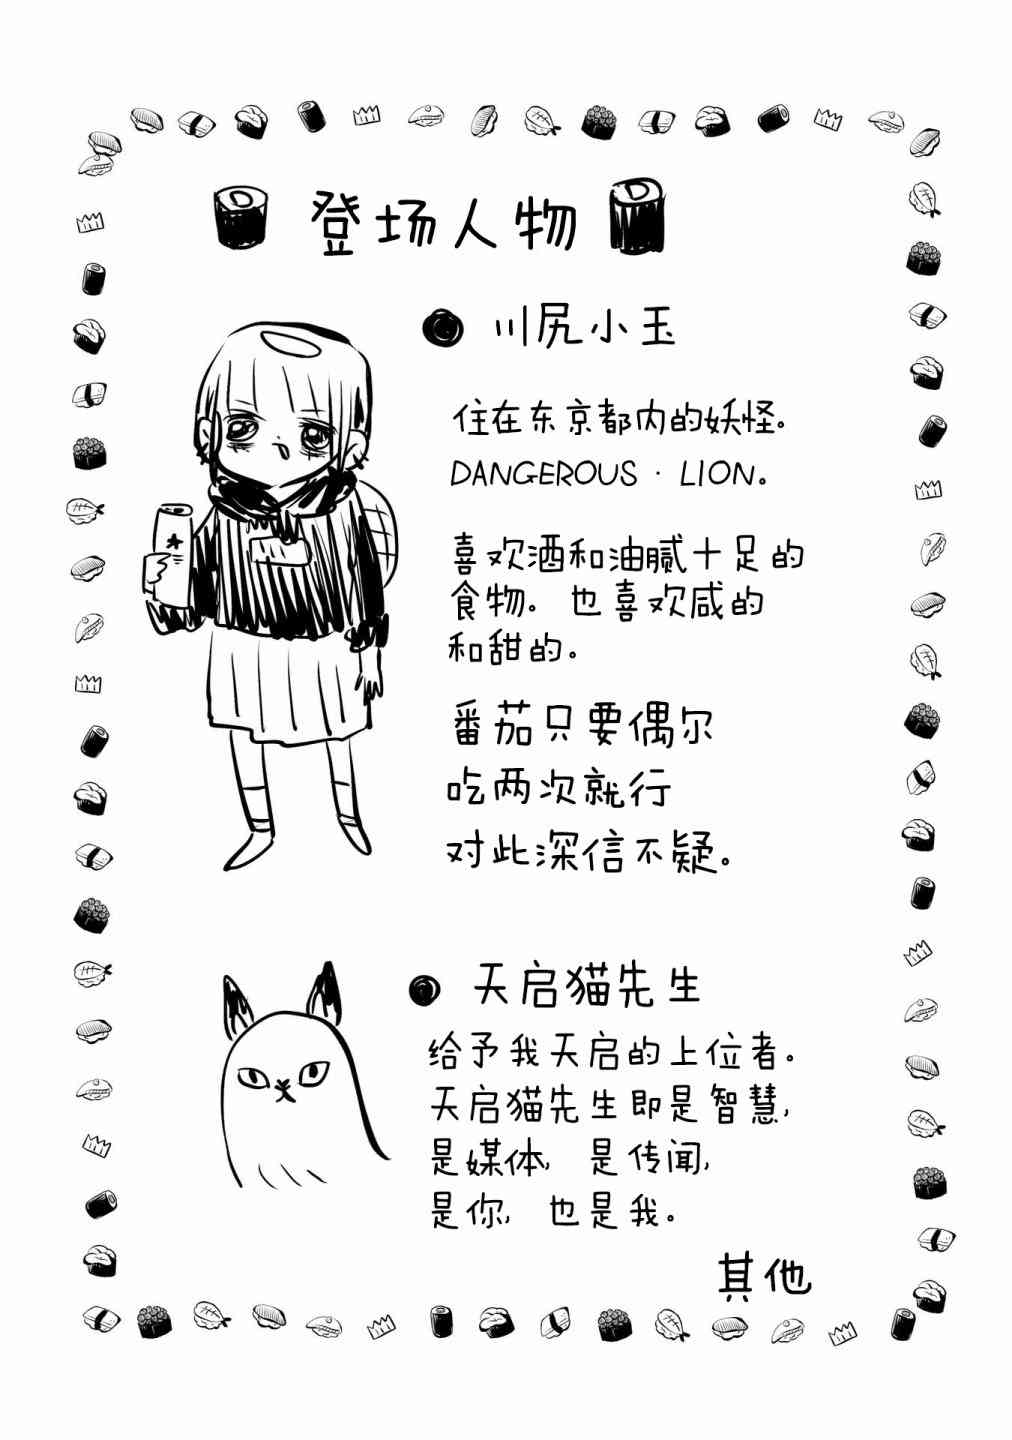 登场人物
川尻小玉
住在东京都内的妖怪。
DANGEROUS · LION。
喜欢酒和油腻十足的
食物。也喜欢咸的
和甜的。
番茄只要偶尔
吃两次就行
对此深信不疑。
天启猫先生
给予我天启的上位者。
天启猫先生即是智慧,
是媒体, 是传闻,
是你, 也是我。
其他